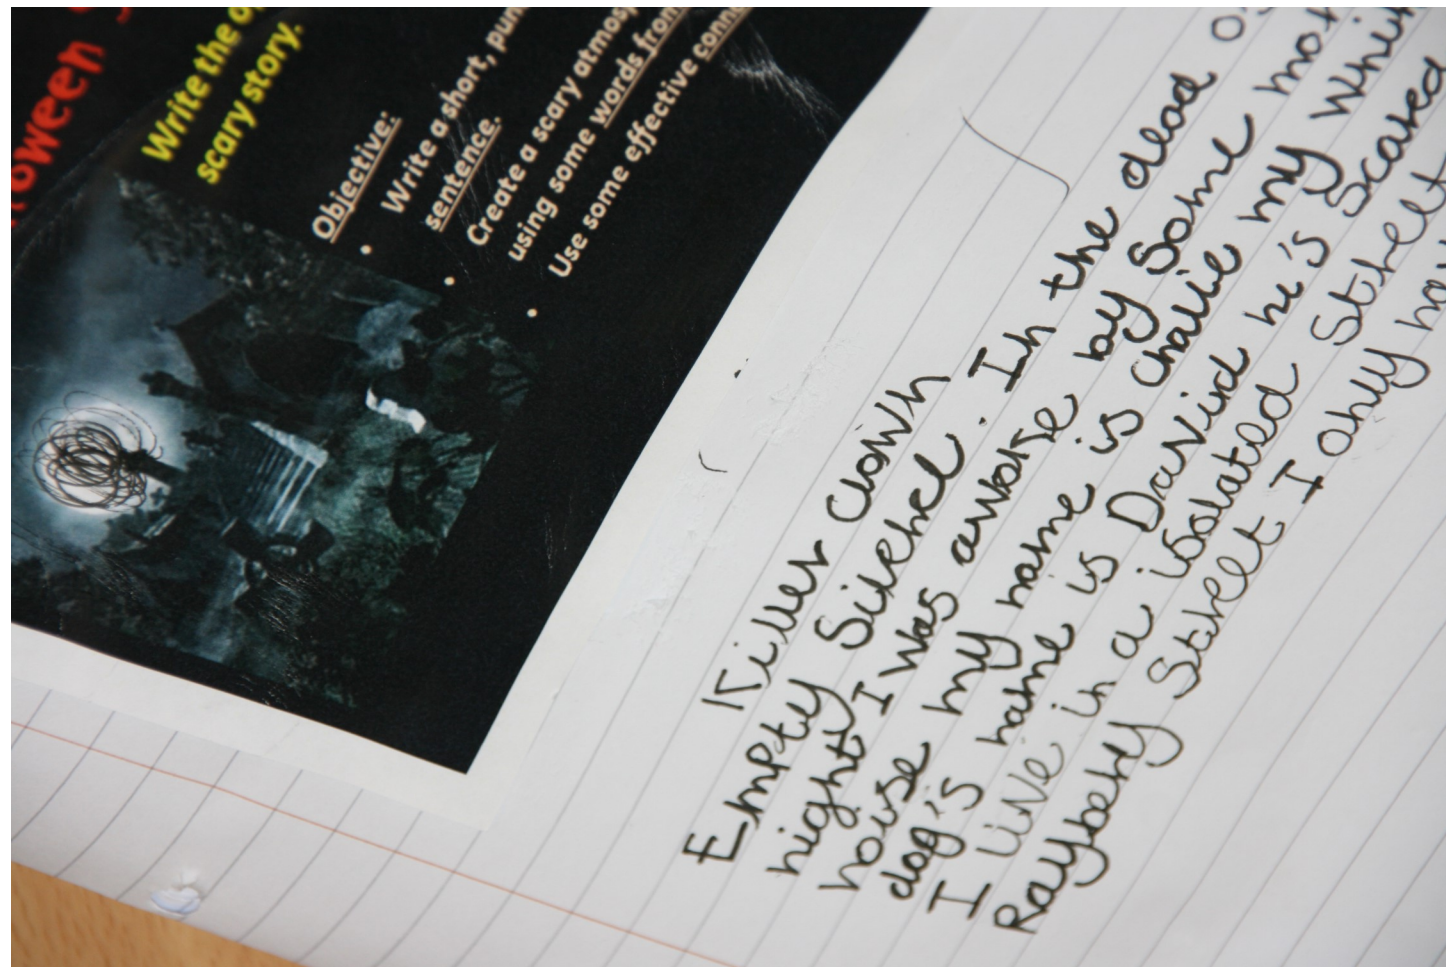 Write the
scary story.
Objective:
• Write a short,
sentence.
• Create a scary
using some words from
• Use some effective
Killer clown
Empty . In the dead
night I was awoke by some
house my name is charlie my
dog's name is Davind he's scared
I live in a isolated Streelt
Street I only